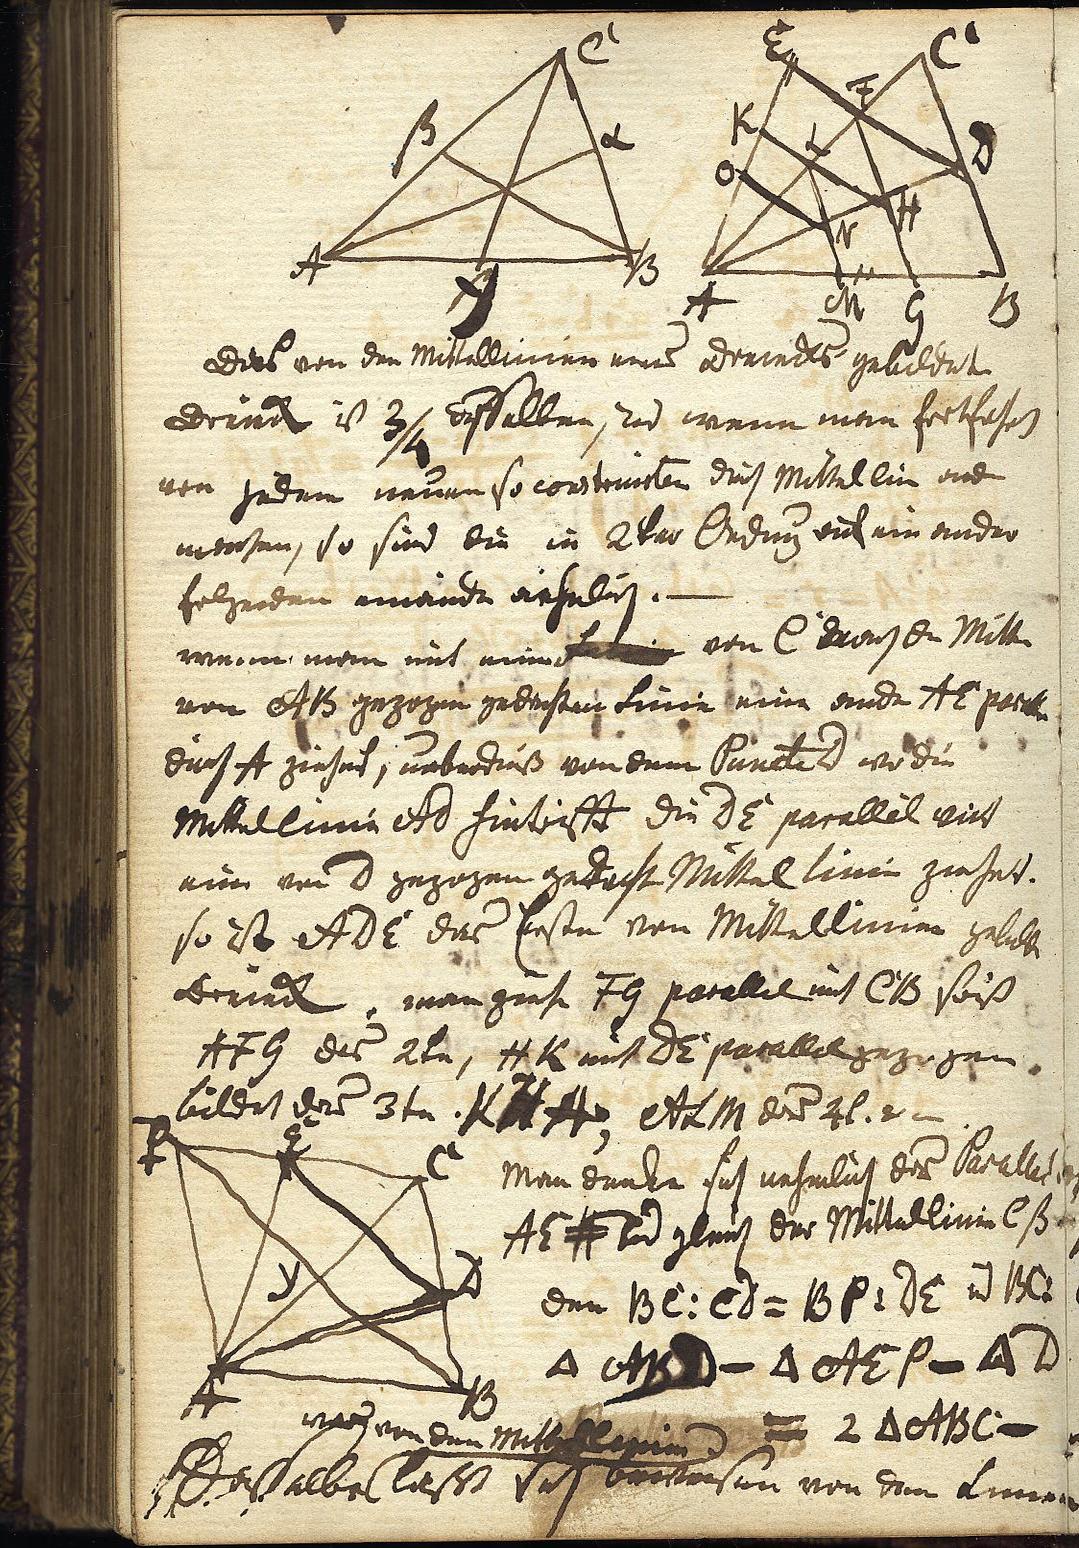 C
β
α
A
B
γ
E
C
F
K
L
D
O
H
N
A
M
G
B
Das von den Mittellinien eines Dreiecks gebildet
Dreieck ist 3/4 desselben, und wenn man fortfährt
von jedem neuen so construirten durch Mittellin
machen, so sind die in 2ter Ordnung auf einander
folgenden einander aehnlich. —
wenn man mit einer von C durch die Mitte
von AB gezogen gedachten Linie eine andre AE parallel
durch A ziehet, ueberdiess von dem Puncte D wo die
Mittellinie AD hintrifft die DE parallel mit
eine von D gezogen gedacht Mittellinie ziehet.
so ist ADE das erste von Mittellinien gebildete
Dreieck. man ziehe FG parallel mit CB so ist
HFG das 2te, HK mit DE parallel gezogen
bildet das 3te. ALM das 4t.
P
E
C
Man denke sich nehmlich das Parallel
AE und gleich der Mittellinie C
y
D
denn BC : CD = BP : DE u BC :
Δ ABD — Δ AEP — Δ D
A
B
= 2 Δ ABC —
von den Mittellinien
Dasselbe lässt sich beweisen von den Linien